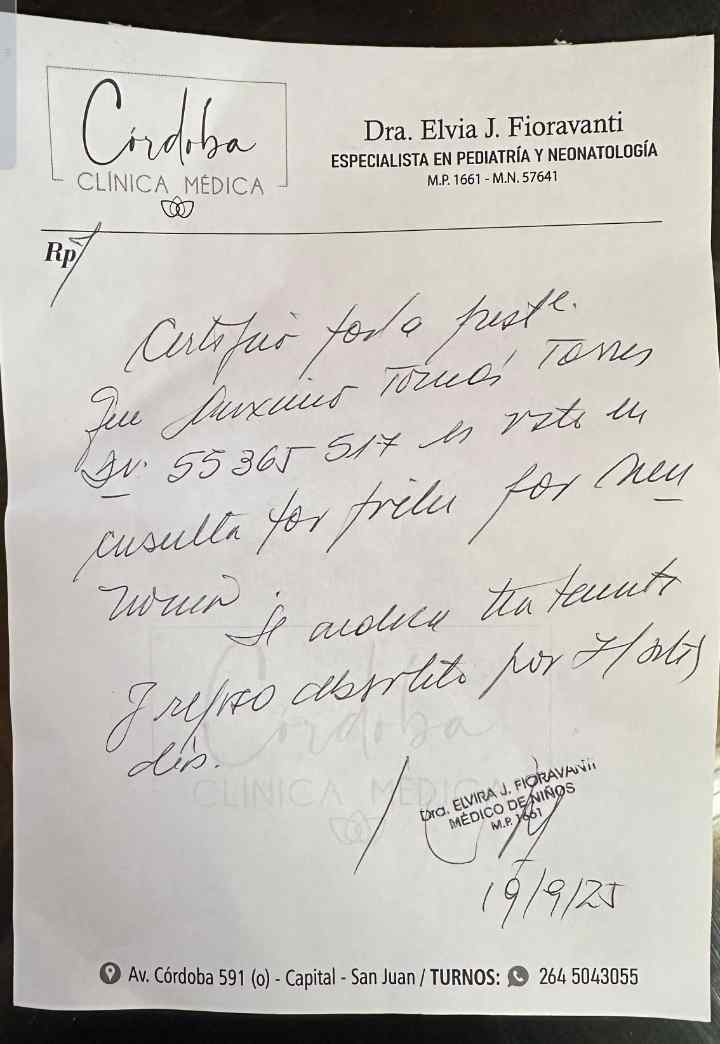 Córdoba
CLÍNICA MÉDICA
Dra. Elvia J. Fioravanti
ESPECIALISTA EN PEDIATRÍA Y NEONATOLOGÍA
M.P. 1661 - M.N. 57641
Rp/
Certifico por la preste.
Que Tomás Torres
55365517 es visto en
consulta por por neu
monía. Se indica tratamiento
y reposo absoluto por 7/siete)
días.
Córdoba
CLÍNICA MÉDICA
Dra. ELVIRA J. FIORAVANTI
MÉDICO DE NIÑOS
M.P. 1661
19/9/25
Av. Córdoba 591 (o) - Capital - San Juan / TURNOS: 264 5043055